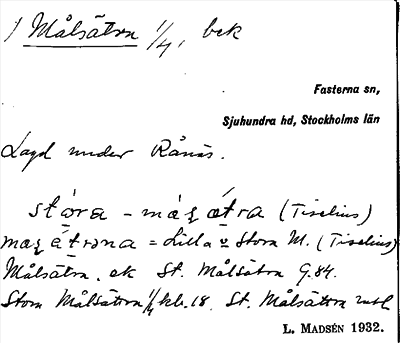 1 Målsätra 1/4, bek
Fasterna sn,
Sjuhundra hd, Stockholms län
Lagd under Rånäs.
stóra - mąʒ ǻtra (Tiselius)
maʒ ǻtrəna = Lilla o Stora M. (Tiselius)
Målsätra. ek St. Målsätra G.84.
Stora Målsätra 1/4 kb. 18. St. Målsättra
L. MADSÉN 1932.